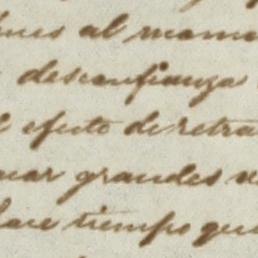 al mome
desconfianza
efecto de retra
grandes
hace tiempo que